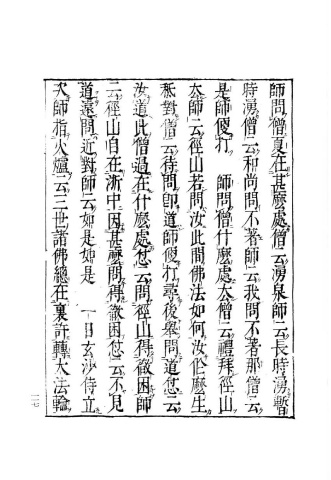 師問僧夏在甚麽處僧云湧泉師云長時湧暫
時湧僧云和尚問不著師云我問不著那僧云
是師便打　師問僧什麽處去僧云禮拜徑山
去師云徑山若問汝此間佛法如何汝作麽生
秖對僧云待問即道師便打尋後舉問道怤云
汝道此僧過在什麽處怤云問徑山得徹困師
云徑山自在浙中因甚麽問得徹困怤云不見
道遠問近對師云如是如是　一日玄沙侍立
次師指火爐云三世諸佛總在裏許轉大法輪
一七